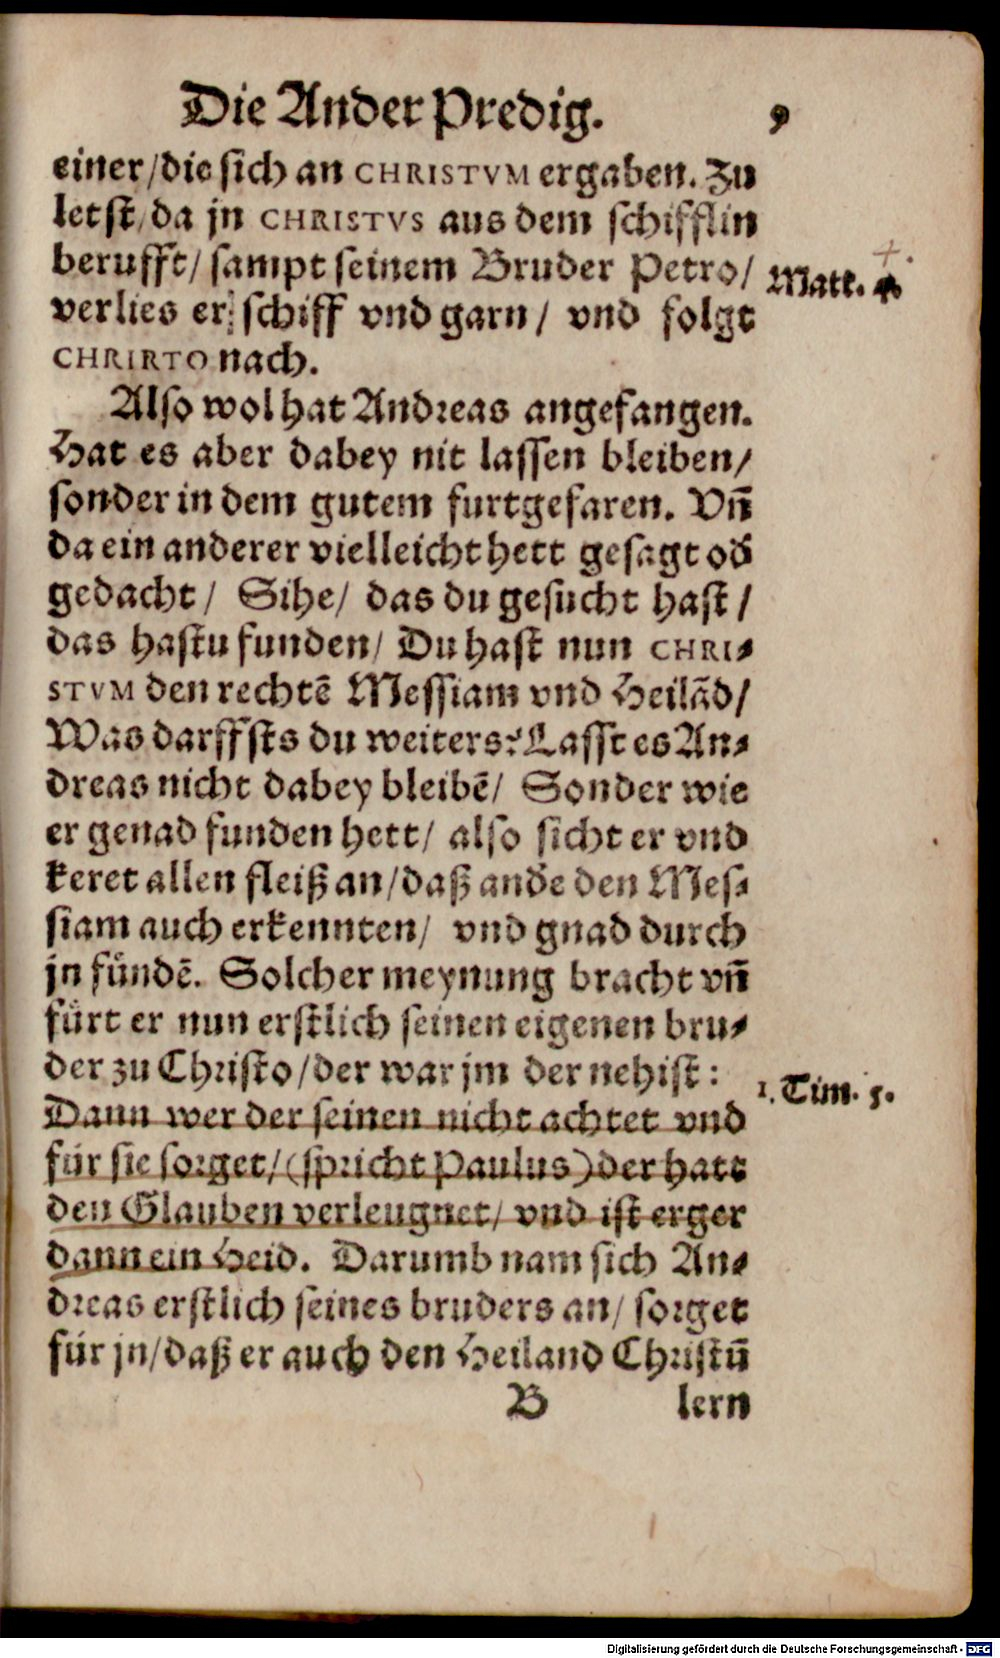 Die Ander Predig. 9
einer/die sich an CHRISTVM ergaben. Zu
letst/da jn CHRISTVS aus dem schifflin
berufft/ sampt seinem Bruder Petro/
4.
Matt. 4.
verlies er schiff vnd garn/ vnd folgt
CHRIRTO nach.
Also wol hat Andreas angefangen.
Hat es aber dabey nit lassen bleiben/
sonder in dem gutem furtgefaren. Vñ
da ein anderer vielleicht hett gesagt od̃
gedacht/ Sihe/ das du gesucht hast/
das hastu funden/ Du hast nun CHRI-
STVM den rechtẽ Messiam vnd Heilãd/
Was darffsts du weiters? Lasst es An-
dreas nicht dabey bleibẽ/ Sonder wie
er genad funden hett/ also sicht er vnd
keret allen fleiß an/daß and̃e den Mes-
siam auch erkennten/ vnd gnad durch
jn fündẽ. Solcher meynung bracht vñ
fürt er nun erstlich seinen eigenen bru-
der zu Christo/der war jm der nehist:
1. Tim. 5.
Dann wer der seinen nicht achtet vnd
für sie sorget/(spricht Paulus) der hatt
den Glauben verleugnet/ vnd ist erger
dann ein Heid. Darumb nam sich An-
dreas erstlich seines bruders an/ sorget
für jn/daß er auch den Heiland Christũ
B lern
Digitalisierung gefördert durch die Deutsche Forschungsgemeinschaft - DFG